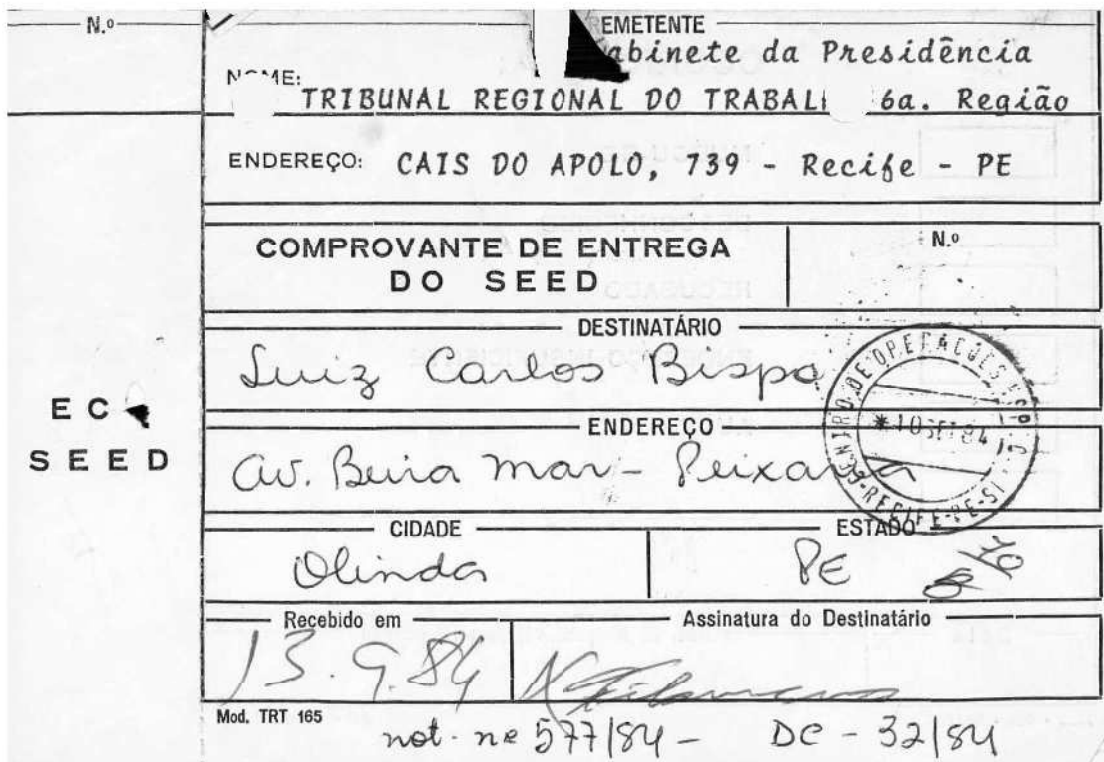 N.º
REMETENTE
Gabinete da Presidência
NOME:
TRIBUNAL REGIONAL DO TRABAL 6a. Região
ENDEREÇO: CAIS DO APOLO, 739 - Recife - PE
COMPROVANTE DE ENTREGA
DO SEED
N.º
DESTINATÁRIO
Luiz Carlos Bispo
EC
SEED
ENDEREÇO
Av. Beira Mar -
CENTRO DE OPERAÇÕES
*10 SET 84
RECIFE-PE
CIDADE
ESTADO
Olinda
PE
70
Recebido em
Assinatura do Destinatário
13.9.84
Mod. TRT 165
not. nº 577/84 - DC - 32/84